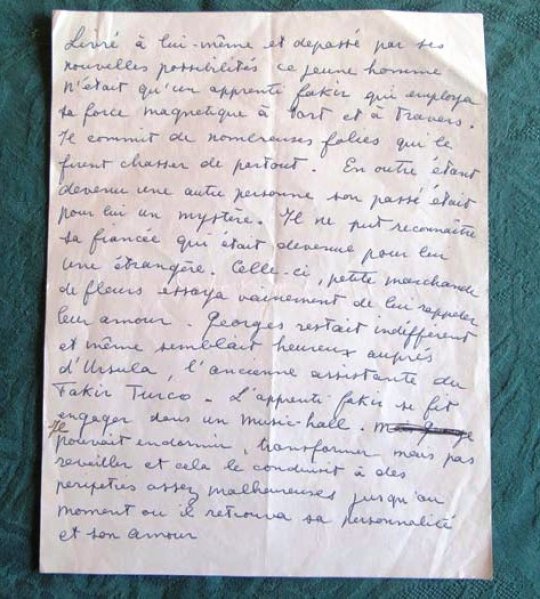 Livré à lui-même et depassé par ses
nouvelles possibilités ce jeune homme
n'était qu'un apprenti fakir qui employa
sa force magnetique à tort et à travers.
Il commit de nombreuses folies qui le
firent chasser de partout. En outre étant
devenu une autre personne son passé était
pour lui un mystère. Il ne put reconnaître
sa fiancée qui était devenue pour lui
une étrangère. Celle-ci, petite marchande
de fleurs essaya vainement de lui rappeler
leur amour. Georges restait indifférent
et même semblait heureux auprés
d'Ursula, l'ancienne assistante du
Fakir Turco. L'apprenti fakir se fit
engager dans un music-hall.
Il pouvait endormir, transformer mais pas
reveiller et cela le conduisit à des
peripeties assez malheureuses jusqu'au
moment ou il retrouva sa personnalité
et son amour